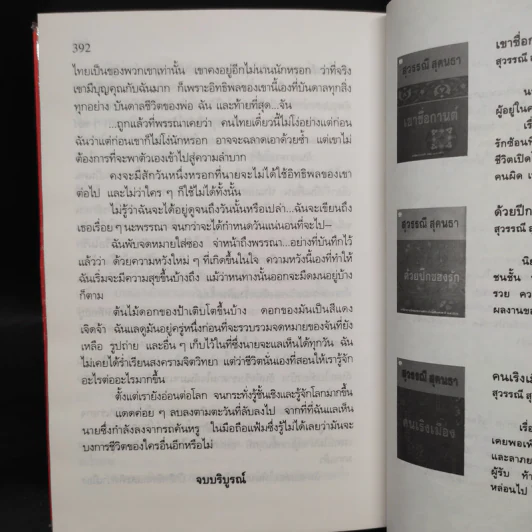 392
ไทยเป็นของพวกเขาเท่านั้น เขาคงอยู่อีกไม่นานนักหรอก ว่าที่จริง
เขามีบุญคุณกับฉันมาก ก็เพราะอิทธิพลของเขานี้เองที่บันดาลทุกสิ่ง
ทุกอย่าง บันดาลชีวิตของพ่อ ฉัน และท้ายที่สุด...จัน
...ถูกแล้วที่พรรณาเคยว่า คนไทยเดี๋ยวนี้ไม่โง่อย่างแต่ก่อน
ฉันว่าแต่ก่อนเขาก็ไม่โง่นักหรอก อาจจะฉลาดเอาด้วยซ้ำ แต่เขาไม่
ต้องการที่จะพาตัวเองเข้าไปสู่ความลำบาก
คงจะมีสักวันหนึ่งหรอกที่นายจะไม่ได้ใช้อิทธิพลของเขา
ต่อไป และไม่ว่าใคร ๆ ก็ใช้ไม่ได้ทั้งนั้น
ไม่รู้ว่าฉันจะได้อยู่ดูจนถึงวันนั้นหรือเปล่า...ฉันจะเขียนถึง
เธอเรื่อย ๆ นะพรรณา จนกว่าจะได้กำหนดวันแน่นอนที่จะไป—
ฉันพับจดหมายใส่ซอง จ่าหน้าถึงพรรณา...อย่างที่บันทึกไว้
แล้วว่า ด้วยความหวังใหม่ ๆ ที่เกิดขึ้นในใจ ความหวังนี้เองที่ทำให้
ฉันเริ่มจะมีความสุขขึ้นบ้างถึง แม้ว่าหนทางนั้นออกจะมืดมนอยู่บ้าง
ก็ตาม
ต้นไม้ดอกของป้าเติบโตขึ้นบ้าง ดอกของมันเป็นสีแดง
เจิดจ้า ฉันแลดูมันอยู่ครู่หนึ่งก่อนที่จะรวบรวมจดหมายของจันที่ยัง
เหลือ รูปถ่าย และอื่น ๆ เก็บไว้ในที่ซึ่งนายจะแลเห็นได้ทุกวัน ฉัน
ไม่เคยได้ร่ำเรียนสงครามจิตวิทยา แต่ว่าชีวิตนั่นเองที่สอนให้เรารู้จัก
อะไรต่ออะไรมากขึ้น
ตั้งแต่เรายังอ่อนต่อโลก จนกระทั่งรู้ชั้นเชิงและรู้จักโลกมากขึ้น
แดดค่อย ๆ ลบลงตามตะวันที่ลับลงไป จากที่ที่ฉันแลเห็น
นายซึ่งกำลังลงจากรถคันหรู ในมือถือแฟ้มซึ่งรู้ไม่ได้เลยว่ามันจะ
บงการชีวิตของใครอื่นอีกหรือไม่
จบบริบูรณ์
สุวรรณี สุคนธา
เขาชื่อกานต์
เขาชื่อก
สุวรรณี
ผู้อยู่ในค
เรื่
รักซ้อนที่
ชีวิตเปิด
คนผิด
สุวรรณี สุคนธา
ด้วยปีกของรัก
ด้วยปีก
สุวรรณี
ชนชั้น
รวย ควา
ผลงานขอ
สุวรรณี สุคนธา
คนเริงเมือง
คนเริงเมื
สุวรรณี
เรื่อ
เคยพอเพี
และลาภย
ผู้รับ
หล่อนไป